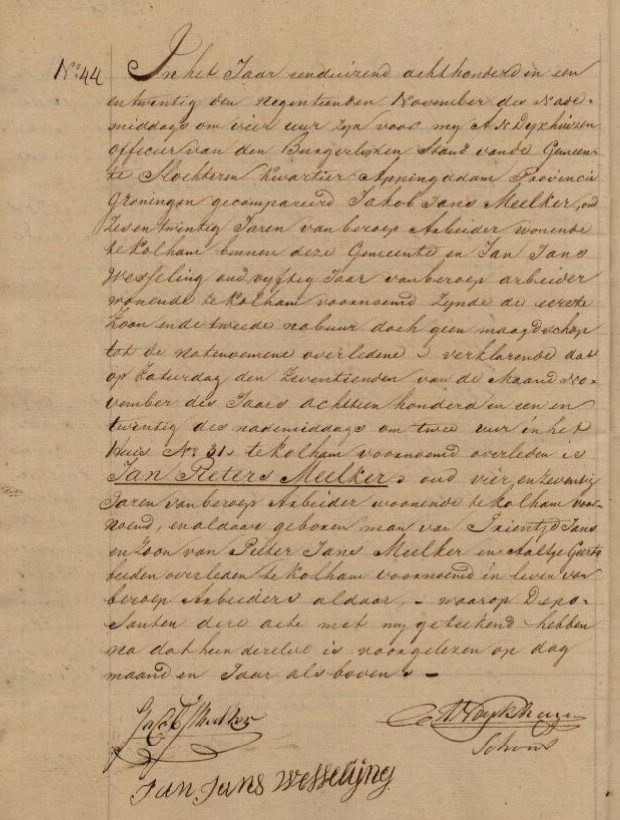 No 44
In het Jaar eenduizend achthonderd en een
en twintig den negentienden November des Nade-
middags om vier uur zyn voor my A N Dykhuizen
officier van den Burgerlyken Stand van de Gemeen-
te Slochteren Kwartier Appingadam Provincie
Groningen gecompareerd Jakob Jans Meelker, oud
Zes en twintig Jaren van beroep Arbeider wonende
te Kolham binnen deze Gemeente en Jan Jans
Wesseling oud vyftig Jaar van beroep arbeider
wonende te Kolham voornoemd zynde de eerste
Zoon en de tweede nabuur doch geen maagdschap
tot de natenoemene overledene, verklarende dat
op Zaturdag den Zeventienden van de Maand No-
vember des Jaars achttien honderd en een en
twintig des nademiddags om twee uur in het
Huis No 31, te Kolham voornoemd overleden is
Jan Pieters Meelker, oud vier en zeventig
Jaren van beroep Arbeider woonende te Kolham voor-
noemd, en aldaar geboren man van Trientje Jans
en Zoon van Pieter Jans Meelker en Aaltje Geerts
beiden overleden te Kolham voornoemd in leven van
beroep Arbeiders aldaar, - waarop Depo-
santen dere acte met my getekend hebben
na dat hun derselve is voorgelezen op dag
maand en Jaar als boven. -
Jacob J Meelker
A N Dykhuizen
Schout
Jan Jans Wesselijng